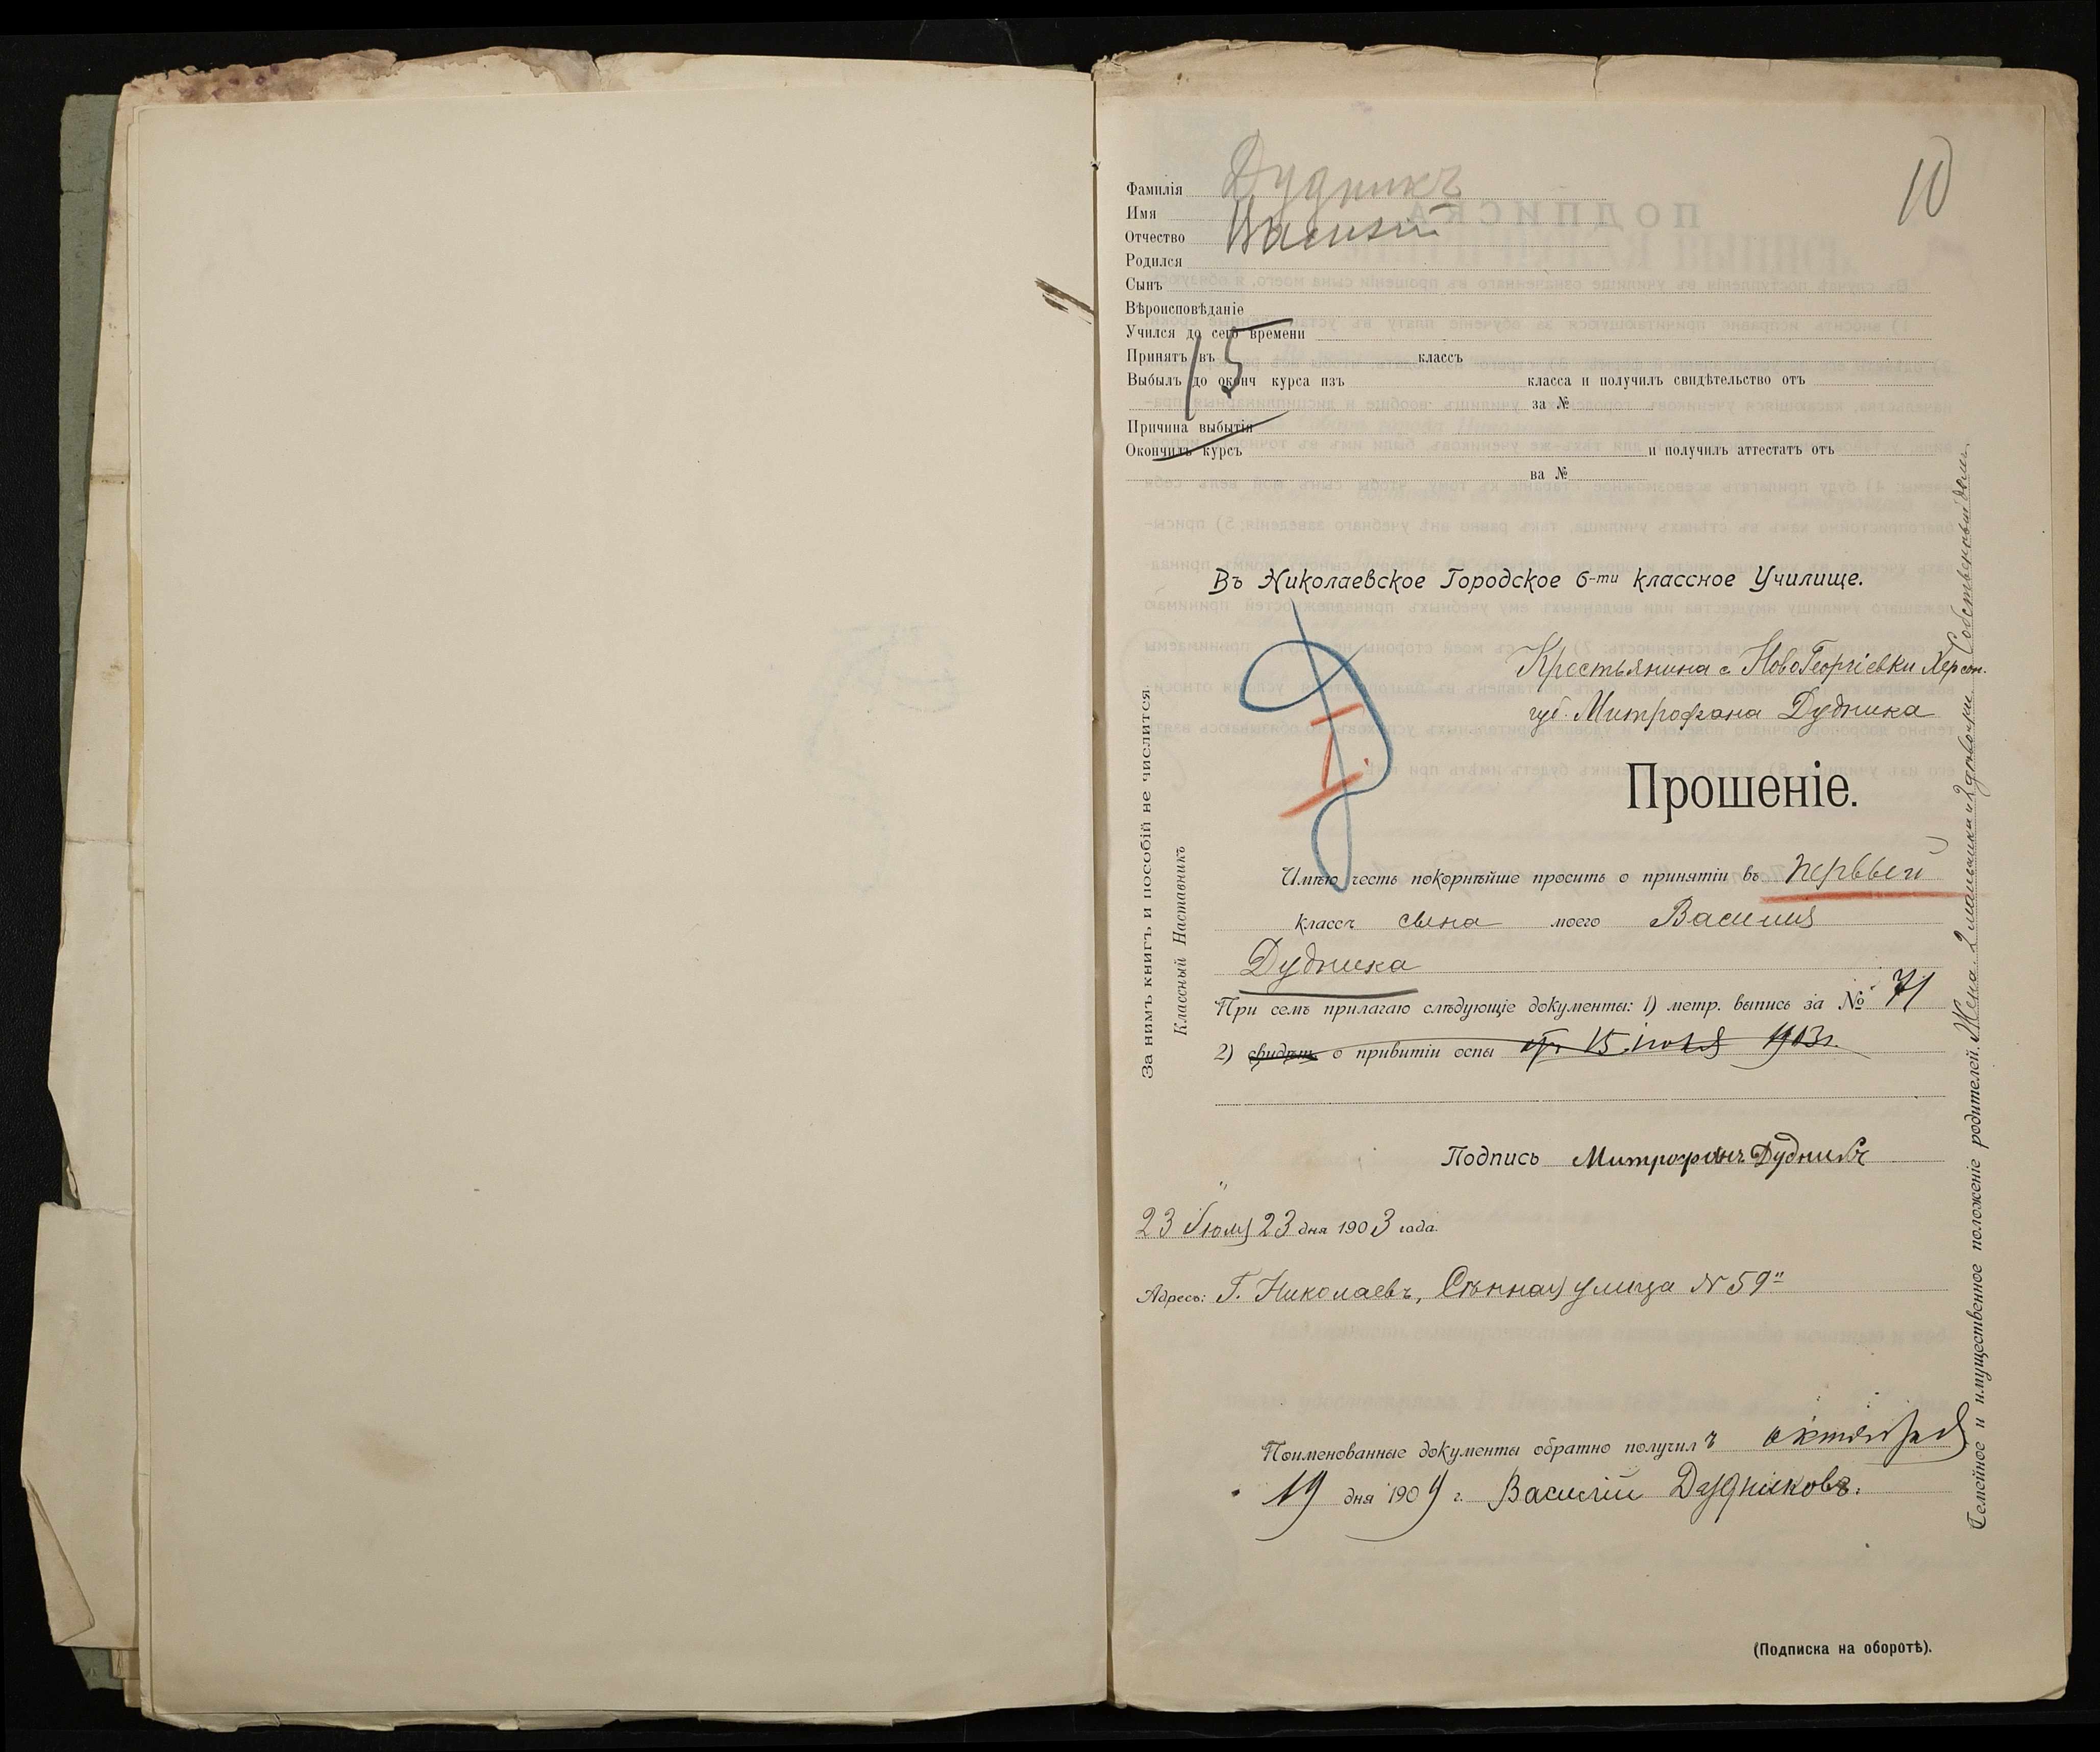 10
Фамилія Дудникъ
Имя Василій
Отчество
Родился
Сынъ
Вѣроисповѣданіе
Учился до сего времени
Принятъ въ классъ
15
Выбылъ до оконч курса изъ класса и получилъ свидѣтельство отъ
за №
Причина выбытія
Окончилъ курсъ и получилъ аттестатъ отъ
за №
Въ Николаевское Городское 6-ти классное Училище.
Крестьянина с. НовоГеоргіевки Херсон.
губ. Митрофана Дудника
I.
Прошеніе.
Имѣю честь покорнѣйше просить о принятіи въ первый
классъ сына моего Василия
Дудника
При семъ прилагаю слѣдующіе документы: 1) метр. выпись за № 71
2) свидѣт. о привитіи оспы от 15 іюля 1903г.
Подпись Митрофанъ Дудникъ
23 Іюля 23 дня 1903 года.
Адресъ: Г. Николаевъ, Сѣнная улица № 59"
Поименованные документы обратно получилъ октября
19 дня 1909 г. Василий Дудниковъ.
(Подписка на оборотѣ).
За нимъ книгъ и пособій не числится.
Классный Наставникъ
Семейное и имущественное положеніе родителей. Жена 2 мальчика и 2 дѣвочки. Собственный домъ.